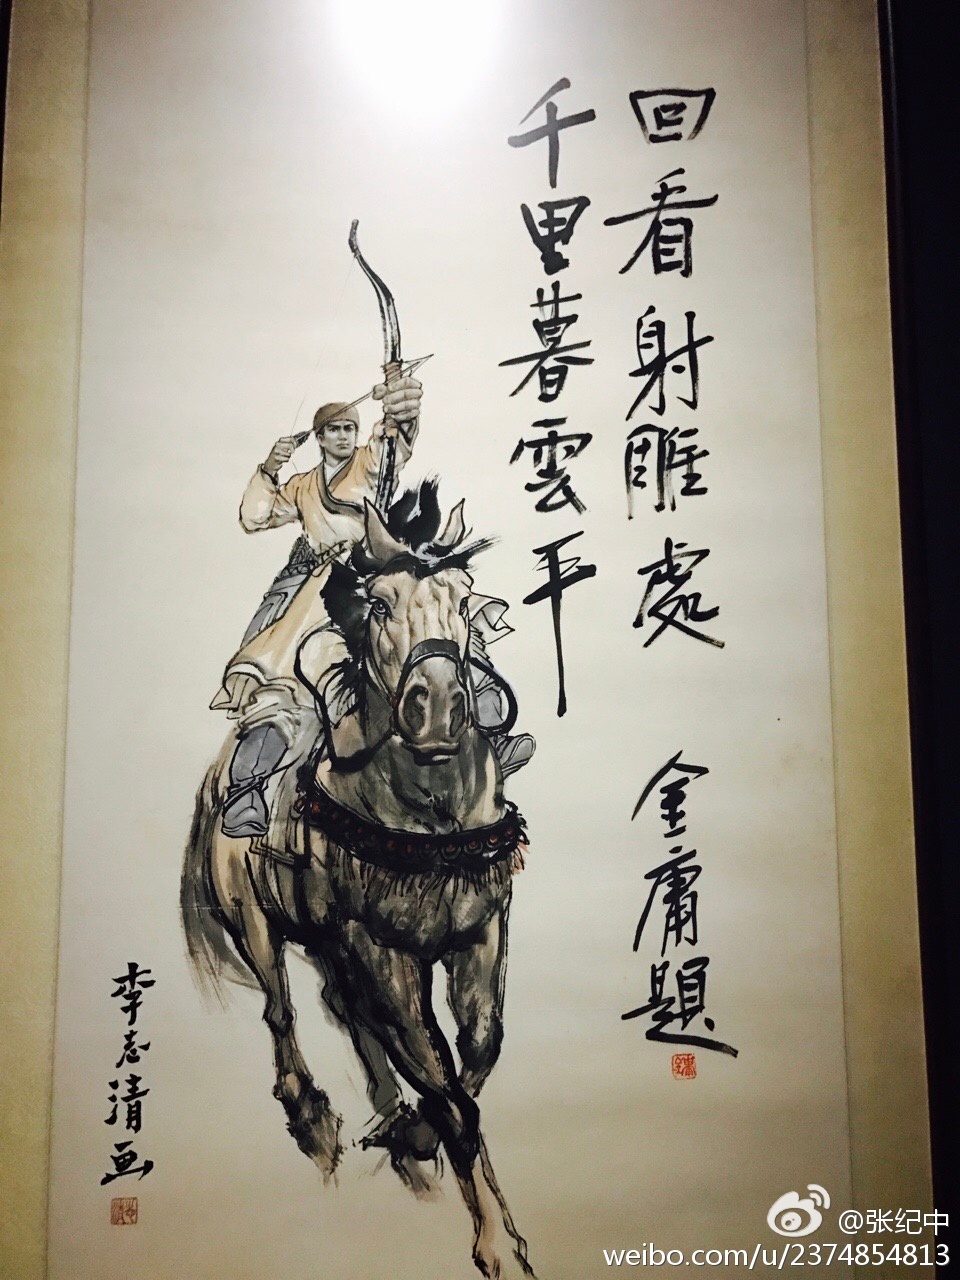 回看射雕處
千里暮雲平
金庸題
李志清画
@张纪中
weibo.com/u/2374854813